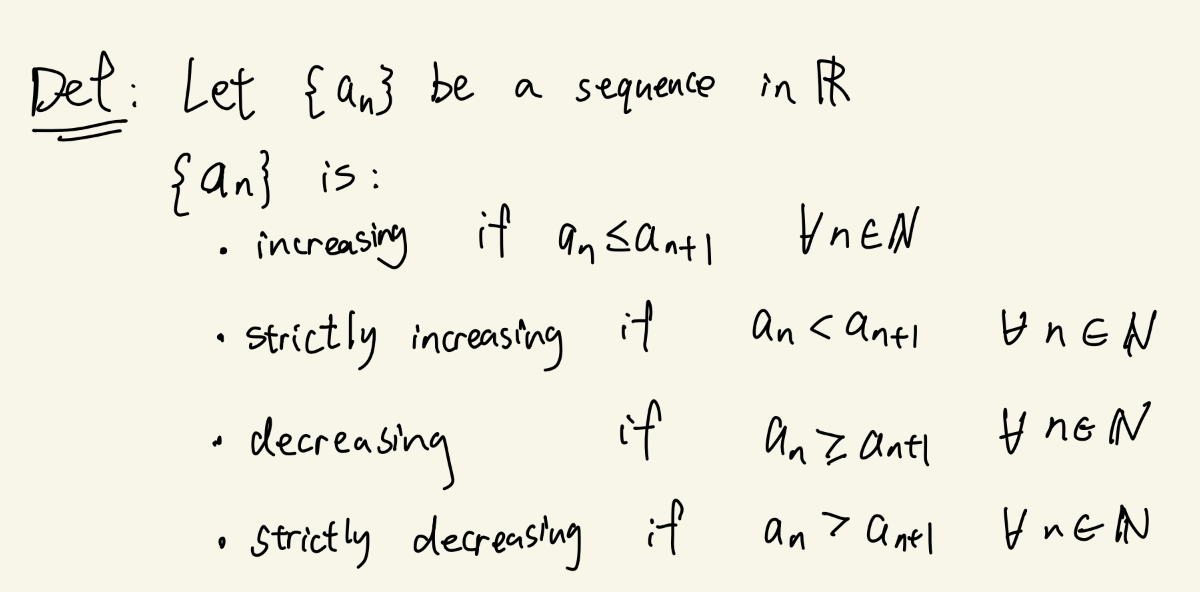 Def: Let {aₙ} be a sequence in ℝ
{aₙ} is:
• increasing if aₙ ≤ aₙ₊₁ ∀ n ∈ ℕ
• strictly increasing if aₙ < aₙ₊₁ ∀ n ∈ ℕ
• decreasing if aₙ ≥ aₙ₊₁ ∀ n ∈ ℕ
• strictly decreasing if aₙ > aₙ₊₁ ∀ n ∈ ℕ